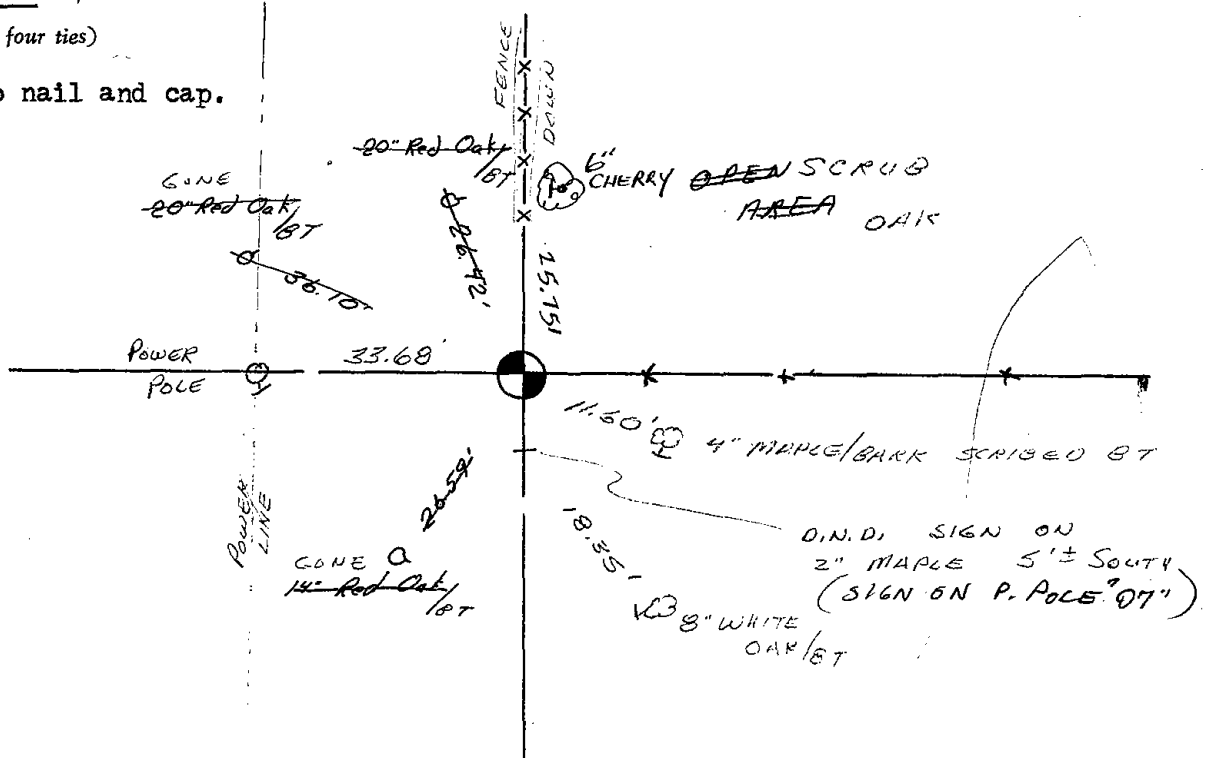 four ties)
nail and cap.
FENCE
DOWN
20" Red Oak/
BT
6"
CHERRY OPEN SCRUB
AREA OAK
GONE
20" Red Oak/
BT
36.10'
26.42'
25.75'
POWER
POLE
33.68'
11.60'
4" MAPLE/BARK SCRIBED BT
POWER
LINE
26.59'
GONE
14" Red Oak/
BT
18.35'
8" WHITE
OAK/BT
D.N.D. SIGN ON
2" MAPLE 5'± SOUTH
(SIGN ON P. POLE "07")